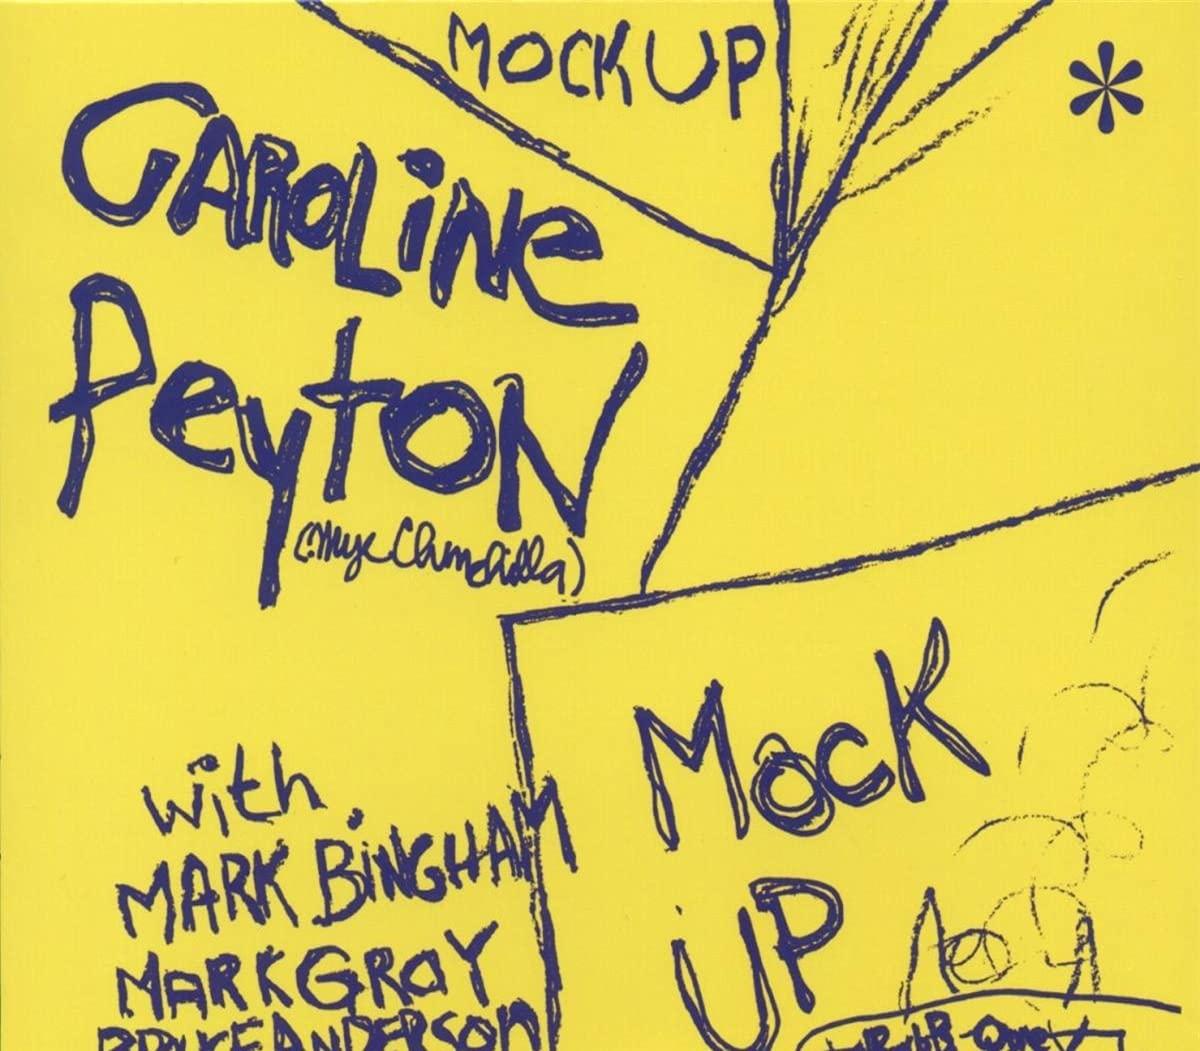 MOCK UP
*
CAROLINE
PEYTON
with
MARK BINGHAM
MARK GRAY
BRUCE ANDERSON
MOCK
UP